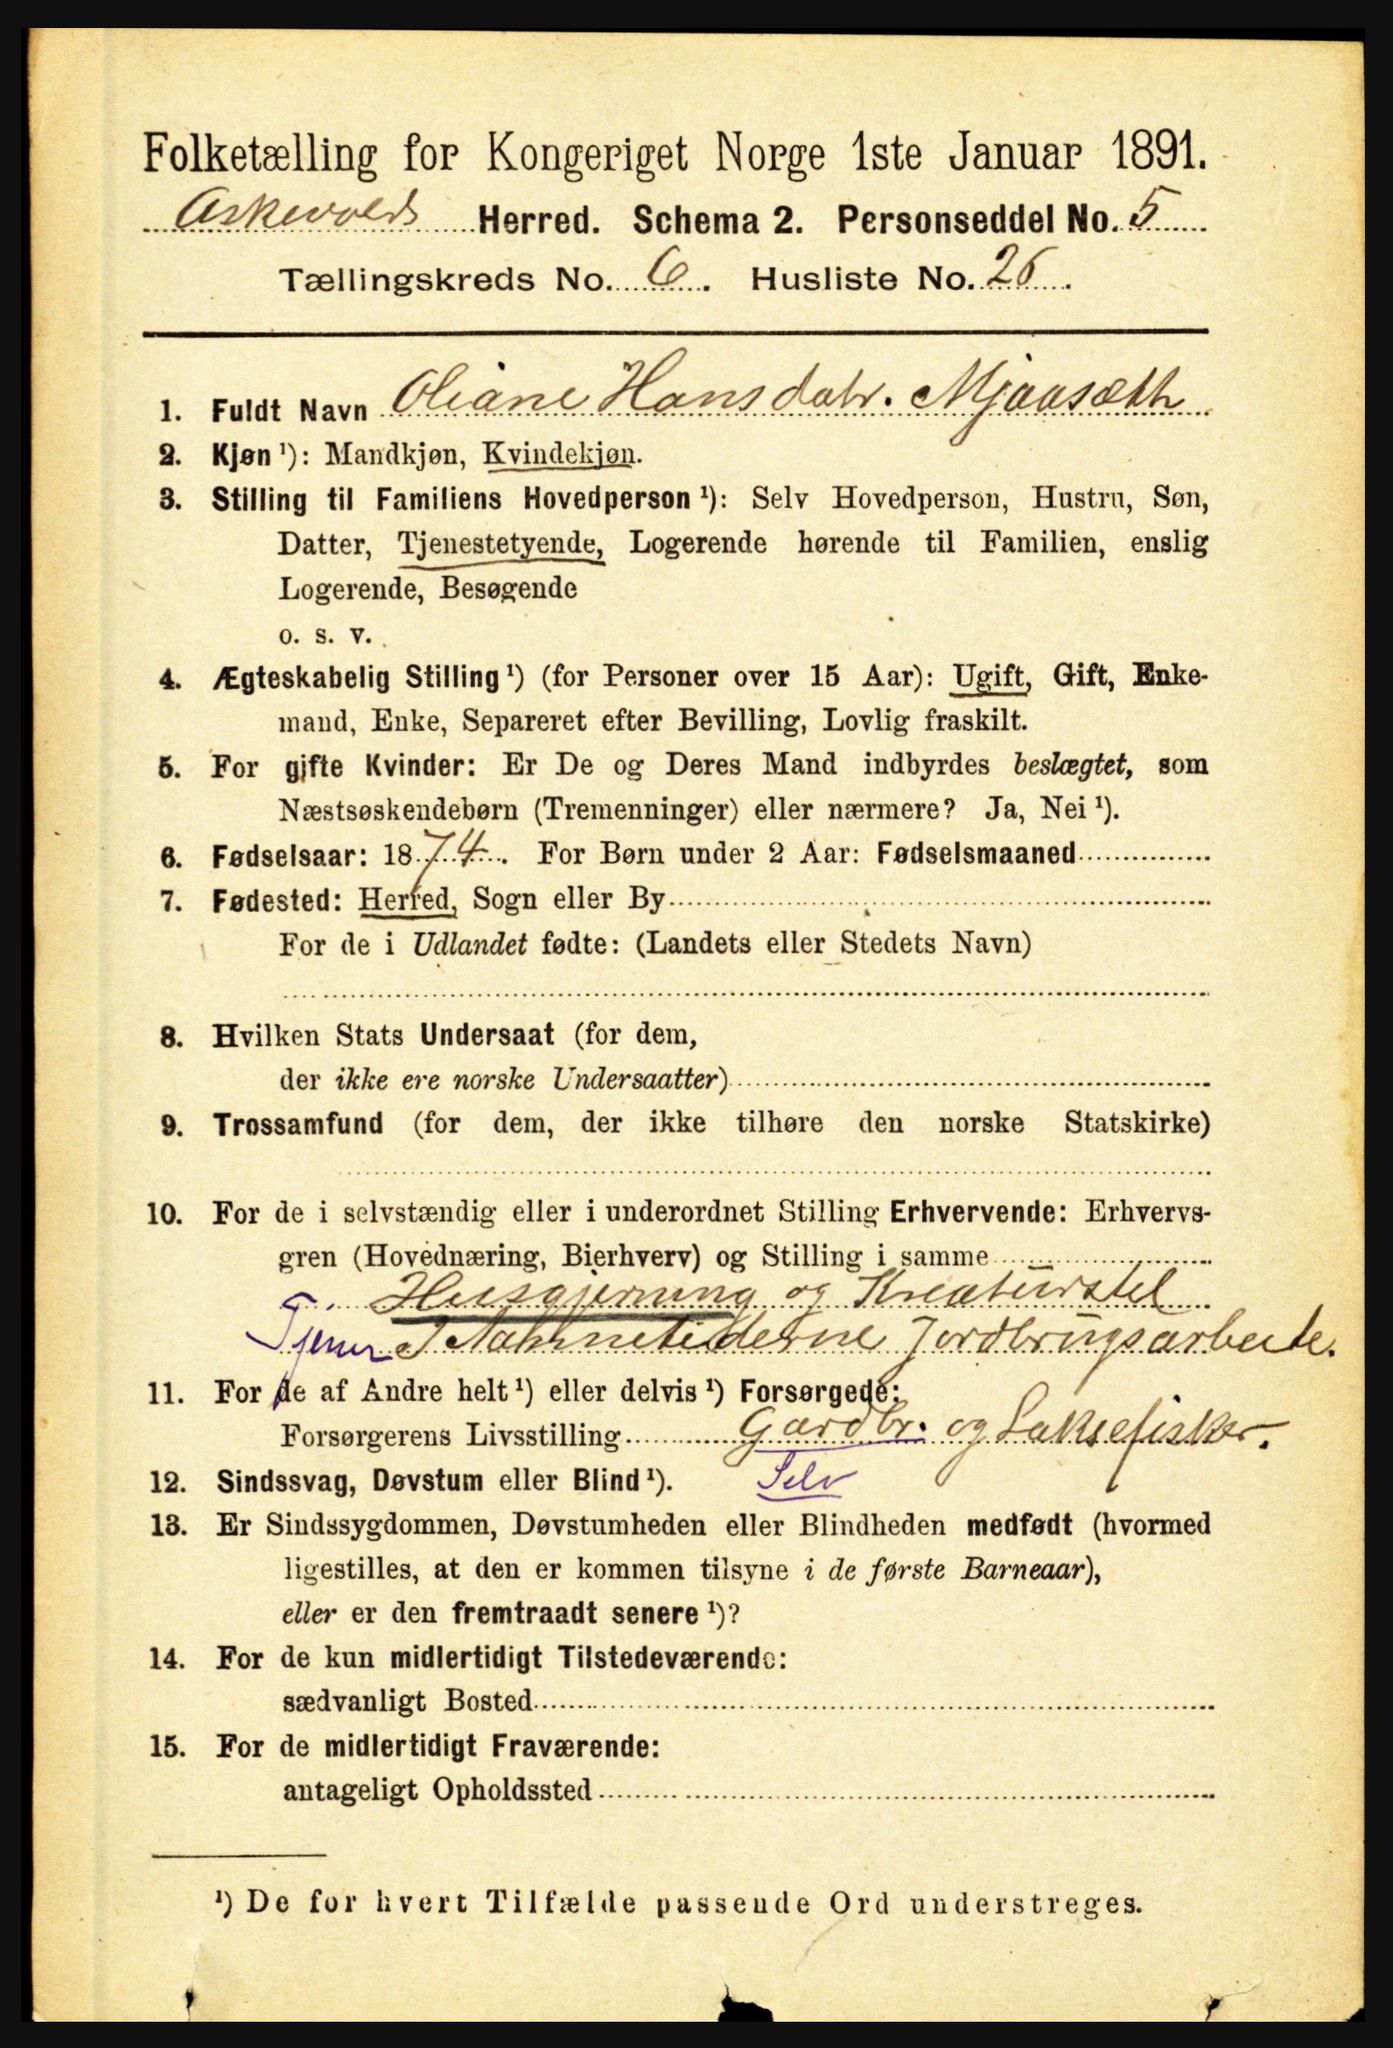 Folketælling for Kongeriget Norge 1ste Januar 1891.
Askevolds Herred. Schema 2. Personseddel No. 5
Tællingskreds No. 6. Husliste No. 26.
1. Fuldt Navn Oliane Hansdatr. Mjaasæth
2. Kjøn ¹): Mandkjøn, Kvindekjøn.
3. Stilling til Familiens Hovedperson ¹): Selv Hovedperson, Hustru, Søn,
Datter, Tjenestetyende, Logerende hørende til Familien, enslig
Logerende, Besøgende
o. s. v.
4. Ægteskabelig Stilling ¹) (for Personer over 15 Aar): Ugift, Gift, Enke-
mand, Enke, Separeret efter Bevilling, Lovlig fraskilt.
5. For gifte Kvinder: Er De og Deres Mand indbyrdes beslægtet, som
Næstsøskendebørn (Tremenninger) eller nærmere? Ja, Nei ¹).
6. Fødselsaar: 1874. For Børn under 2 Aar: Fødselsmaaned
7. Fødested: Herred, Sogn eller By
For de i Udlandet fødte: (Landets eller Stedets Navn)
8. Hvilken Stats Undersaat (for dem,
der ikke ere norske Undersaatter)
9. Trossamfund (for dem, der ikke tilhøre den norske Statskirke)
10. For de i selvstændig eller i underordnet Stilling Erhvervende: Erhvervs-
gren (Hovednæring, Bierhverv) og Stilling i samme
T. Husgjerning og Kreaturstel
Tjener I Aannetiderne Jordbrugsarbeide.
11. For de af Andre helt ¹) eller delvis ¹) Forsørgede:
Forsørgerens Livsstilling Gardbr. og Laksefisker.
12. Sindssvag, Døvstum eller Blind ¹). Selv
13. Er Sindssygdommen, Døvstumheden eller Blindheden medfødt (hvormed
ligestilles, at den er kommen tilsyne i de første Barneaar),
eller er den fremtraadt senere ¹)?
14. For de kun midlertidigt Tilstedeværende:
sædvanligt Bosted
15. For de midlertidigt Fraværende:
antageligt Opholdssted
¹) De for hvert Tilfælde passende Ord understreges.